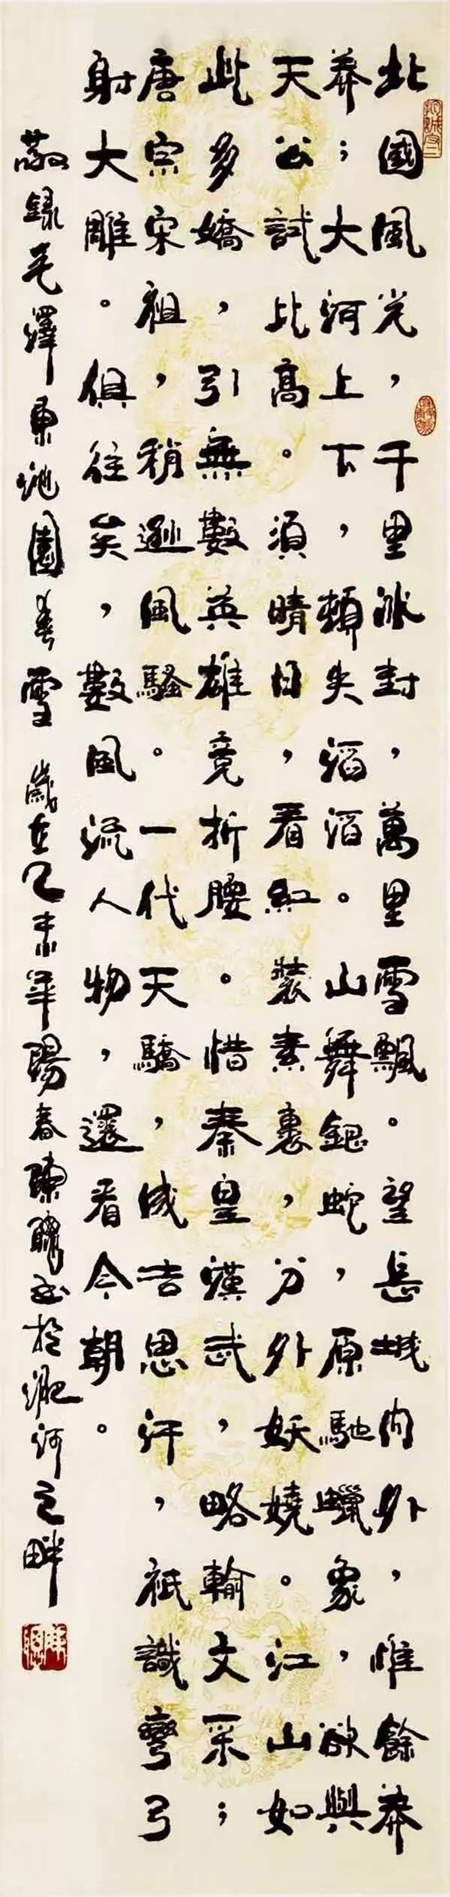 北國風光，千里冰封，萬里雪飄。望長城內外，惟餘莽
莽；大河上下，頓失滔滔。山舞銀蛇，原馳蠟象，欲與
天公試比高。須晴日，看紅裝素裹，分外妖嬈。江山如
此多嬌，引無數英雄竟折腰。惜秦皇漢武，略輸文采；
唐宗宋祖，稍遜風騷。一代天驕，成吉思汗，祇識彎弓
射大雕。俱往矣，數風流人物，還看今朝。
敬錄毛澤東沁園春雪 歲在乙未年陽春陳書於淝河之畔